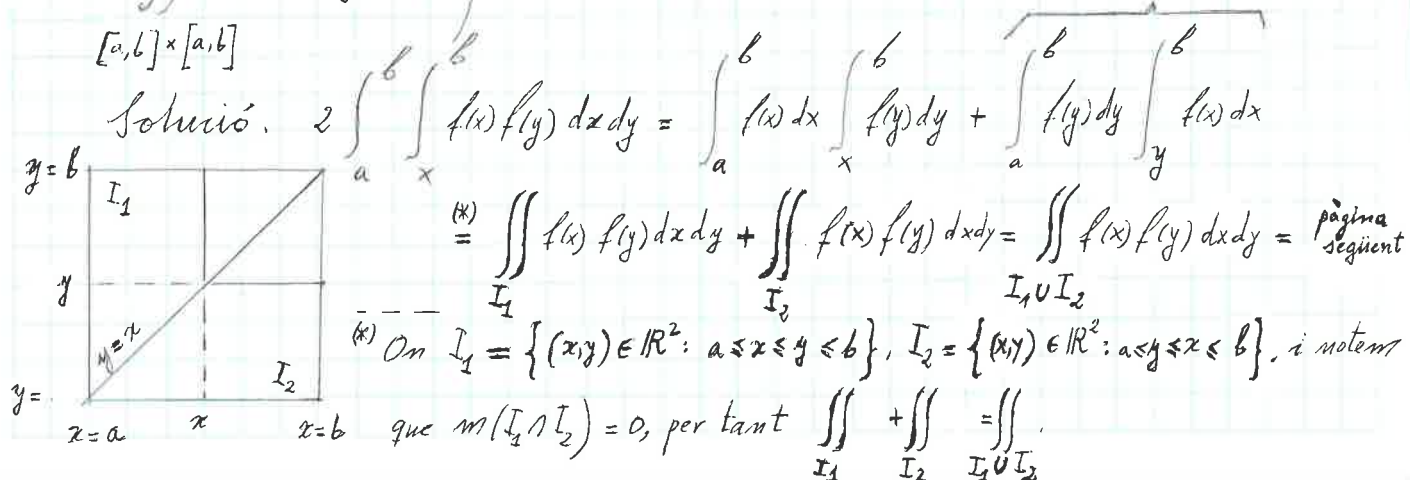 [a,b]×[a,b]
Solució. 2 ∫_a^b ∫_x^b f(x) f(y) dx dy = ∫_a^b f(x) dx ∫_x^b f(y) dy + ∫_a^b f(y) dy ∫_y^b f(x) dx
(*) = ∬_{I_1} f(x) f(y) dx dy + ∬_{I_2} f(x) f(y) dx dy = ∬_{I_1 ∪ I_2} f(x) f(y) dx dy = pàgina següent
y=b
I_1
y
y=x
I_2
y=
x=a x x=b
(*) On I_1 = {(x,y) ∈ ℝ²: a ≤ x ≤ y ≤ b}, I_2 = {(x,y) ∈ ℝ²: a ≤ y ≤ x ≤ b}. i notem
que m(I_1 ∩ I_2) = 0, per tant ∬_{I_1} + ∬_{I_2} = ∬_{I_1 ∪ I_2}.